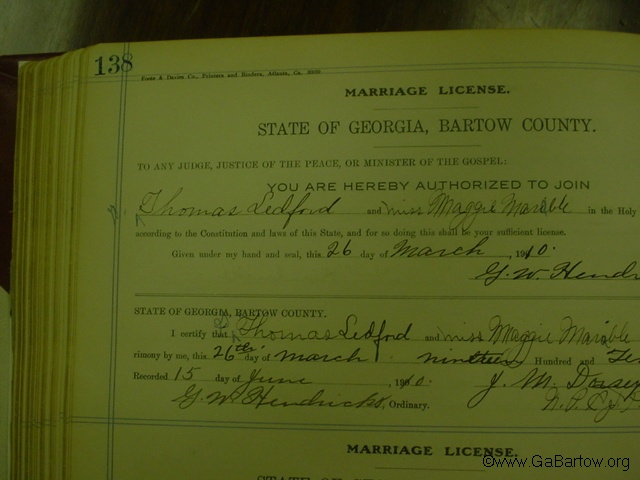 138
Foote & Davies Co., Printers and Binders, Atlanta, Ga.
MARRIAGE LICENSE.
STATE OF GEORGIA, BARTOW COUNTY.
TO ANY JUDGE, JUSTICE OF THE PEACE, OR MINISTER OF THE GOSPEL:
YOU ARE HEREBY AUTHORIZED TO JOIN
Thomas Ledford and miss Maggie Marable in the Holy
according to the Constitution and laws of this State, and for so doing this shall be your sufficient license.
Given under my hand and seal, this 26 day of March, 1910.
G. W. Hendri
STATE OF GEORGIA, BARTOW COUNTY.
I certify that Thomas Ledford and miss Maggie Marable
rimony by me, this 26th day of march nineteen Hundred and Te
Recorded 15 day of June, 1910. J. M. Dorsey
G. W. Hendricks, Ordinary. N. P.
MARRIAGE LICENSE.
©www.GaBartow.org